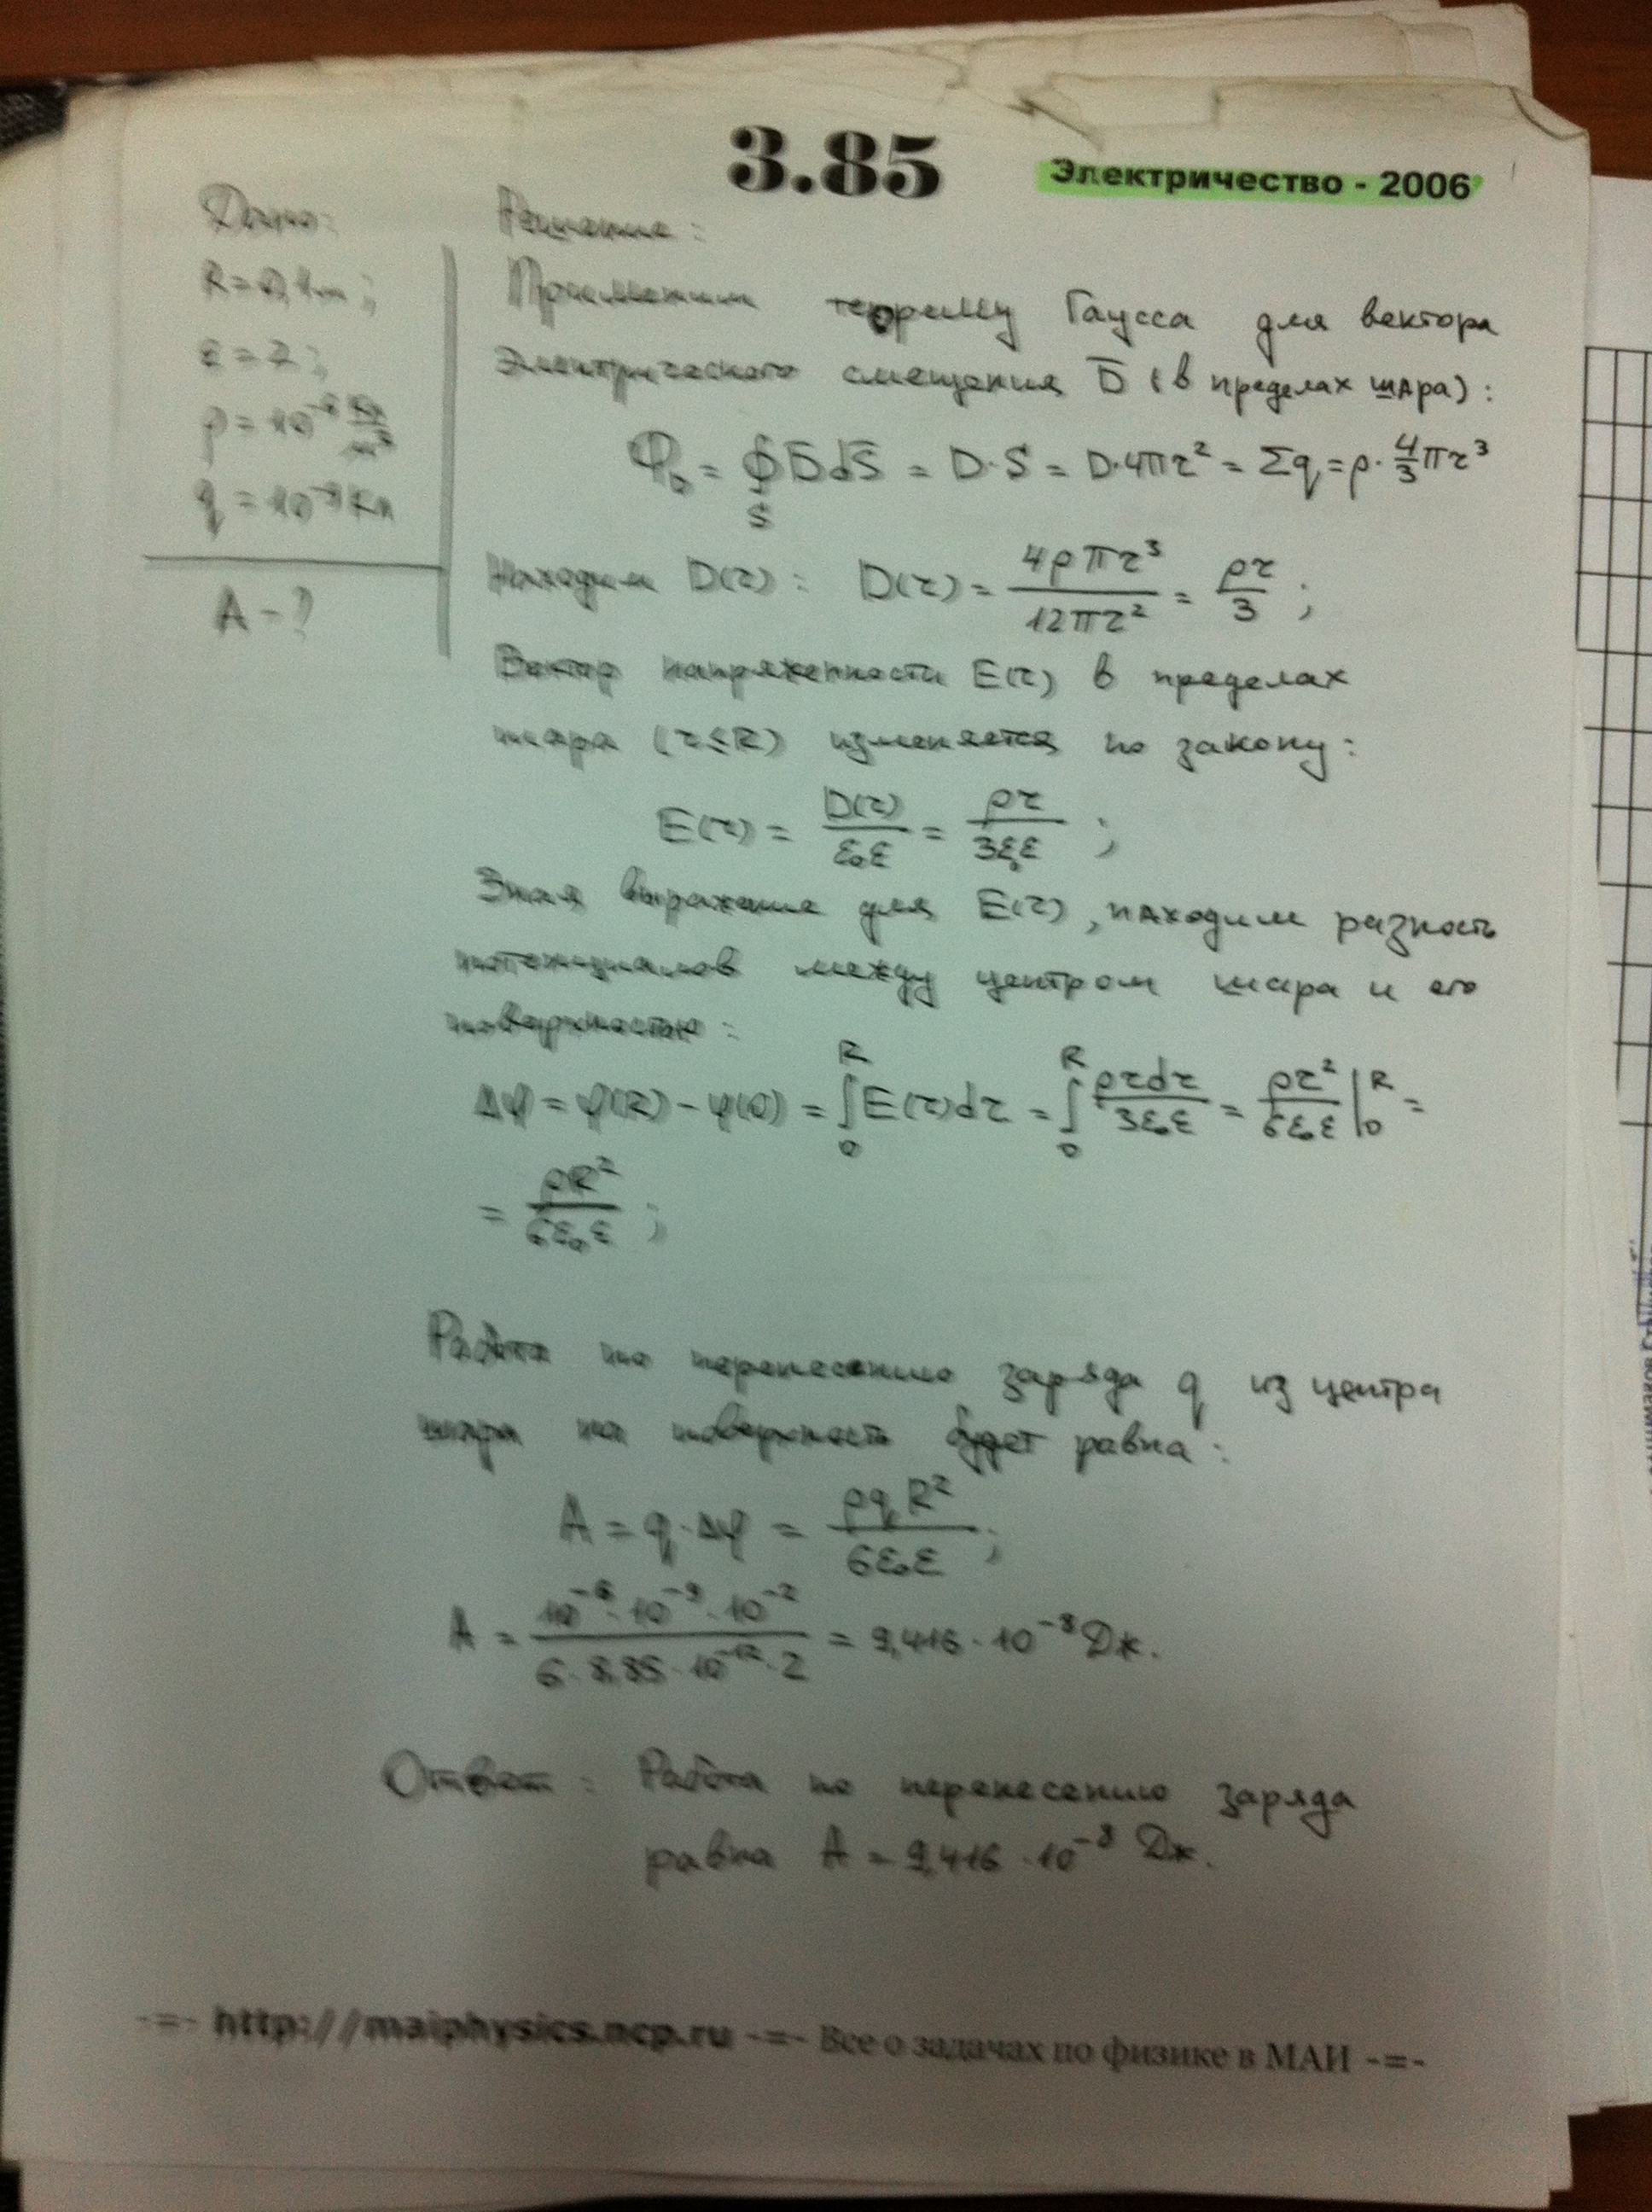 3.85
Электричество - 2006
Дано:
R = 0,1 м;
ε = 2;
ρ = 10⁻⁶ Кл/м³
q = 10⁻⁹ Кл
A - ?
Решение:
Применим теорему Гаусса для вектора
электрического смещения D̅ (в пределах шара):
Φ_D = ∮_S D̅dS̅ = D·S = D·4πr² = Σq = ρ·4/3 πr³
Находим D(r): D(r) = 4ρπr³/12πr² = ρr/3;
Вектор напряженности E(r) в пределах
шара (r≤R) изменяется по закону:
E(r) = D(r)/ε₀ε = ρr/3ε₀ε;
Зная выражение для E(r), находим разность
потенциалов между центром шара и его
поверхностью:
Δφ = φ(R) - φ(0) = ∫₀ᴿ E(r)dr = ∫₀ᴿ ρrdr/3ε₀ε = ρr²/6ε₀ε |₀ᴿ =
= ρR²/6ε₀ε;
Работа по перенесению заряда q из центра
шара на поверхность будет равна:
A = q·Δφ = ρqR²/6ε₀ε;
A = 10⁻⁶·10⁻⁹·10⁻²/6·8,85·10⁻¹²·2 = 9,416·10⁻⁸ Дж.
Ответ: Работа по перенесению заряда
равна A = 9,416·10⁻⁸ Дж.
-=- http://maiphysics.ncp.ru -=- Все о задачах по физике в МАИ -=-